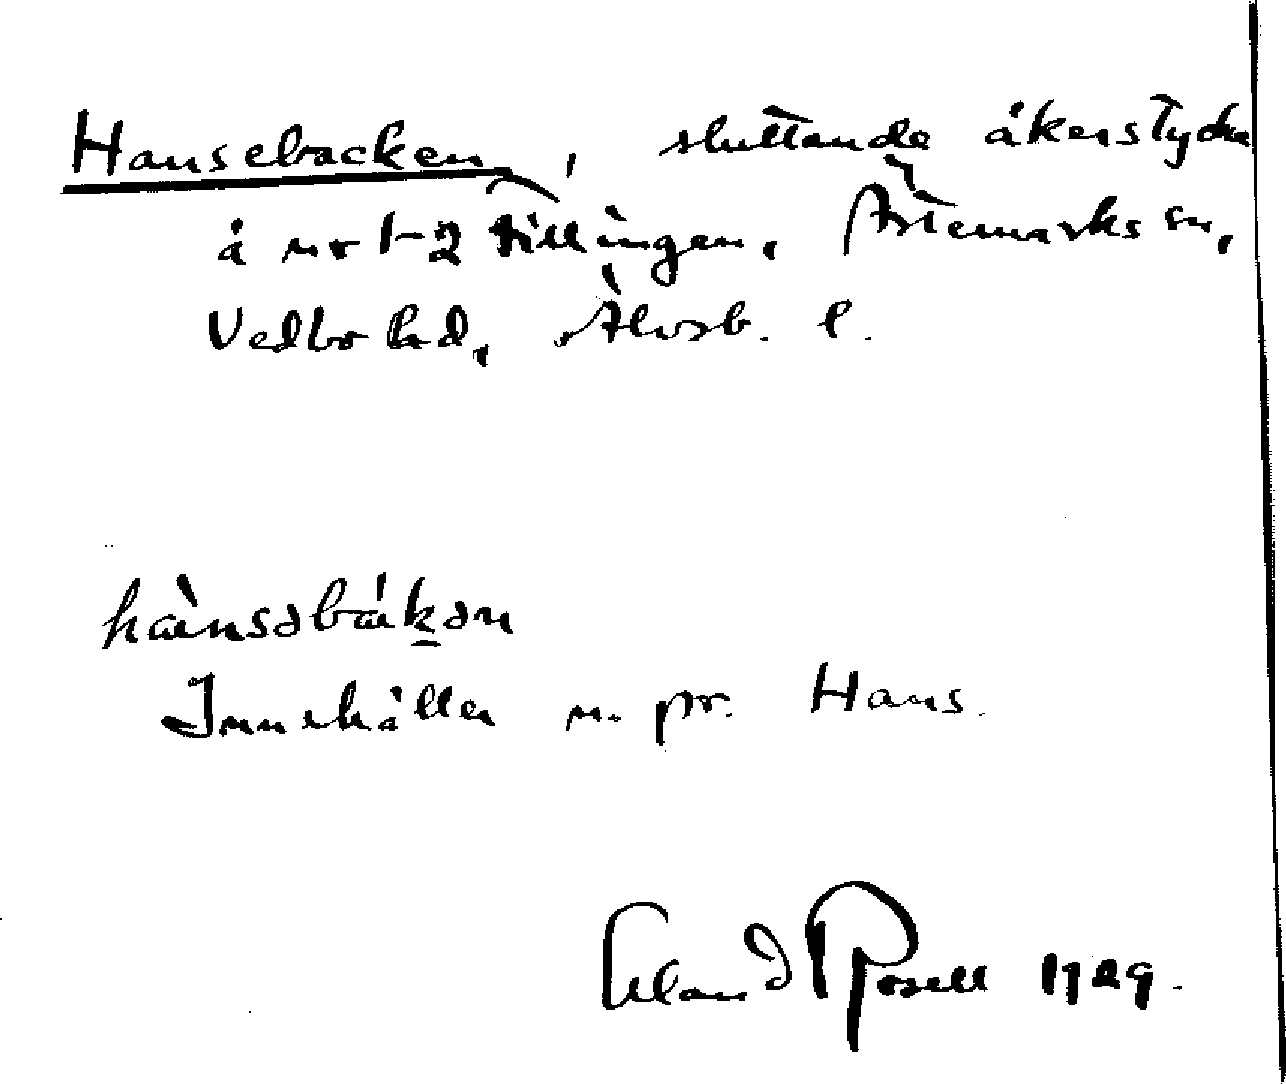 Hansebacken, sluttande åkerstycke
å nr 1-2 Tillingen, Ärtemarks sn,
Vedbo hd, Älvsb. l.
hànsəbákən
Innehåller m. pr. Hans.
Erland Rosell 1929.